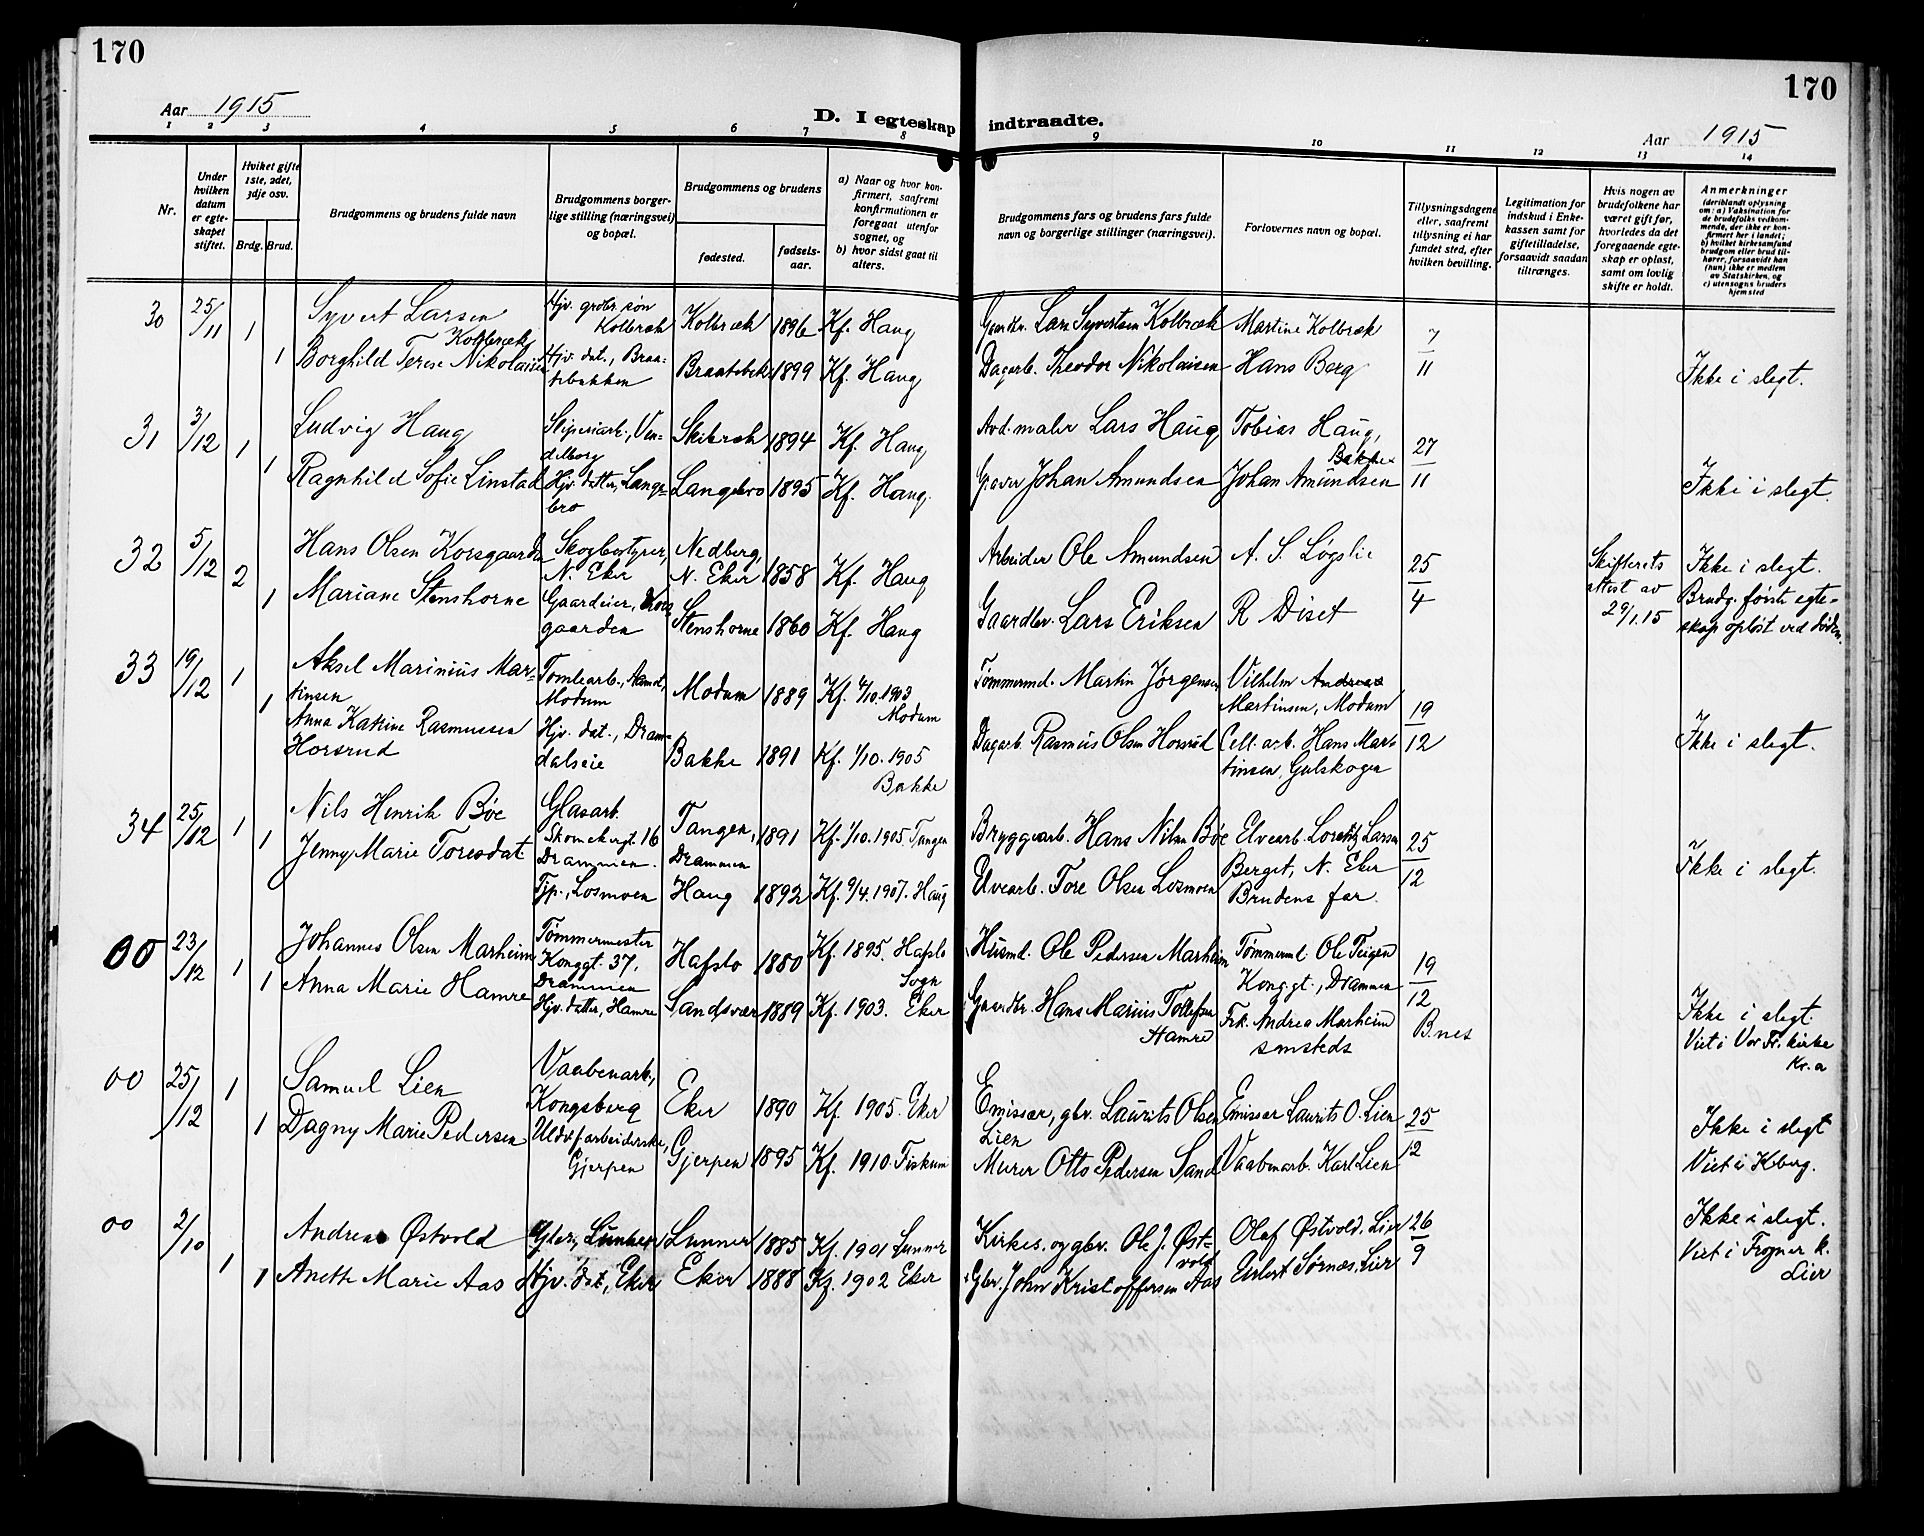 170
170
Aar 1915
D. I egteskap indtraadte.
Aar 1915
1 2 3 4 5 6 7 8 9 10 11 12 13 14
Nr.
Under hvilken datum er egteskapet stiftet.
Hvilket gifte 1ste, 2det, 3dje osv.
Brdg. Brud.
Brudgommens og brudens fulde navn
Brudgommens borgerlige stilling (næringsvei) og bopæl.
Brudgommens og brudens
fødested.
fødselsaar.
a) Naar og hvor konfirmert, saafremt konfirmationen er foregaat utenfor sognet, og
b) hvor sidst gaat til alters.
Brudgommens fars og brudens fars fulde navn og borgerlige stillinger (næringsvei).
Forlovernes navn og bopæl.
Tillysningsdagene eller, saafremt tillysning ei har fundet sted, efter hvilken bevilling.
Legitimation for indskud i Enkekassen samt for giftetilladelse, forsaavidt saadan tiltrænges.
Hvis nogen av brudefolkene har været gift før, hvorledes da det foregaaende egteskap er opløst, samt om lovlig skifte er holdt.
Anmerkninger (deriblandt oplysning om: a) Vaksination for de brudefolks vedkommende, der ikke er konfirmert her i landet; b) hvilket kirkesamfund brudgom eller brud tilhører, forsaavidt han (hun) ikke er medlem av Statskirken, og c) utensogns bruders hjemsted
30 25/11 1 Syvert Larsen Kolbræk Hjv. grdbr. søn Kolbræk Kolbræk 1896 Kf. Haug Gaardbr. Lars Syvertsen Kolbræk Martine Kolbræk 7/11
1 Borghild Terese Nikolaisen Hjv. dat., Braatebakken Braatebak 1899 Kf. Haug Dagarb. Theodor Nikolaisen Hans Berg Ikke i slegt.
31 3/12 1 Ludvig Haug Sliperiarb., Vendelborg Skibræk 1894 Kf. Haug Avd. maler Lars Haug Tobias Haug, Bakke 27/11
1 Ragnhild Sofie Linstad Hjv. datter, Langebro Langebro 1895 Kf. Haug. Graver Johan Amundsen Johan Amundsen Ikke i slegt.
32 5/12 2 Hans Olsen Korsgaarden Skogbestyrer, N. Eker Nedberg, N. Eker 1858 Kf. Haug Arbeider Ole Amundsen A. S. Løgslie 25/4 Skifterets attest av 29/1.15 Ikke i slegt.
1 Mariane Stenshorne Gaardeier, Korsgaarden Stenshorne 1860 Kf. Haug Gaardbr. Lars Eriksen R Diset Brudg. første egteskap opløst ved døden.
33 19/12 1 Aksel Marinius Martinsen Tomtearb., Aamot, Modum Modum 1889 Kf. 4/10.1903 Modum Tømmermd. Martin Jørgensen Vilhelm Andreas Martinsen, Modum 19/12
1 Anna Katrine Rasmussen Horsrud Hjv. dat., Dramdalseie Bakke 1891 Kf. 1/10.1905 Bakke Dagarb. Rasmus Olsen Horsrud Cell. arb. Hans Martinsen, Gulskogen Ikke i slegt.
34 25/12 1 Nils Henrik Bøe Glasarb. Skomakergt. 16 Drammen. Tangen, Drammen 1891 Kf. 1/10.1905 Tangen Bryggearb. Hans Nilsen Bøe Elvearb. Lorentz Larsen Berget, N. Eker 25/12
1 Jenny Marie Toresdat Tjp., Losmoen Haug 1892 Kf. 9/4.1907. Haug Elvearb. Tore Olsen Losmoen Brudens far. Ikke i slegt.
00 23/12 1 Johannes Olsen Marheim Tømmermester Konggt. 37, Drammen Hafslo 1880 Kf. 1895. Hafslo Sogn Husmd. Ole Pedersen Marheim Tømmerml Ole Teigen Konggt., Drammen 19/12
1 Anna Marie Hamre Hjv. datter, Hamre Sandsvær 1889 Kf. 1903. Eker Gaardbr. Hans Marius Tollefsen Hamre Frk. Andrea Marheim smsteds B.nes Ikke i slegt. Viet i Vor Fr. kirke Kr.a
00 25/12 1 Samuel Lien Vaabenarb., Kongsberg Eker 1890 Kf. 1905. Eker Emissær, gbr. Laurits Olsen Lien Emissær Laurits O. Lien 25/12
1 Dagny Marie Pedersen Uldv.f. arbeiderske, Gjerpen Gjerpen 1895 Kf. 1910. Fiskum Murer Otto Pedersen Sand Vaabenarb. Karl Lien Ikke i slegt Viet i Kberg.
00 2/10 1 Andreas Østvold Lunner Lunner 1885 Kf. 1901 Lunner Kirkes. og gbr. Ole J. Østvold Olaf Østvold. Lier 26/9 Ikke i slegt.
1 Anette Marie Aas Hjv. dat., Eker Eker 1888 Kf. 1902 Eker Gbr. John Kristoffersen Aas Eilert Sørnæs. Lier Viet i Frogner k. Lier